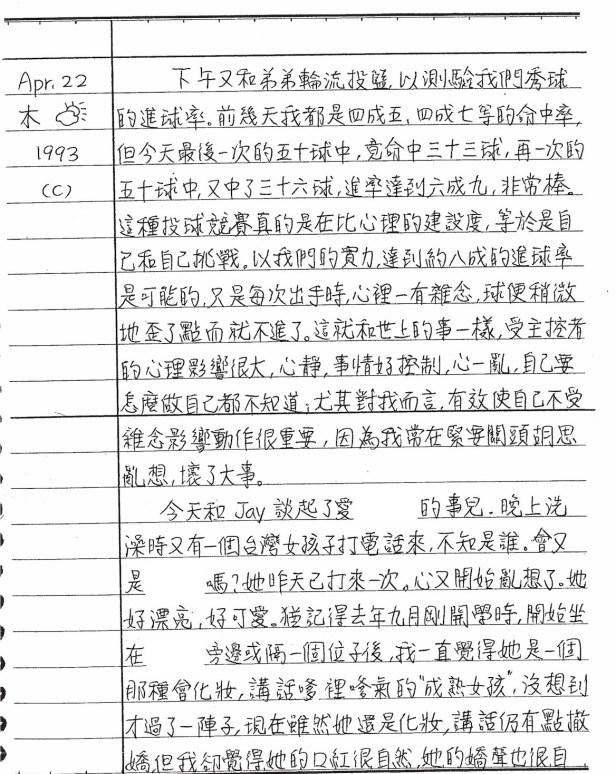 Apr. 22 下午又和弟弟輪流投籃,以測驗我們秀球
木 的進球率。前幾天我都是四成五,四成七等的命中率,
1993 但今天最後一次的五十球中,竟命中三十三球,再一次的
(C) 五十球中,又中了三十六球,進率達到六成九,非常棒。
這種投球競賽真的是在比心理的建設度,等於是自
己和自己挑戰。以我們的實力,達到約八成的進球率
是可能的,只是每次出手時,心裡一有雜念,球便稍微
地歪了點而就不進了。這就和世上的事一樣,受主控者
的心理影響很大,心靜,事情好控制,心一亂,自己要
怎麼做自己都不知道;尤其對我而言,有效使自己不受
雜念影響動作很重要,因為我常在緊要關頭胡思
亂想,壞了大事。
今天和 Jay 談起了愛 的事兒.晚上洗
澡時又有一個台灣女孩子打電話來,不知是誰。會又
是 嗎?她昨天已打來一次。心又開始亂想了。她
好漂亮,好可愛。猶記得去年九月剛開學時,開始坐
在 旁邊或隔一個位子後,我一直覺得她是一個
那種會化妝,講話嗲裡嗲氣的"成熟女孩",沒想到
才過了一陣子,現在雖然她還是化妝,講話仍有點撒
嬌,但我卻覺得她的口紅很自然,她的嬌聲也很自